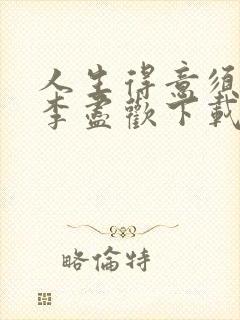 人生得意须
李盡歡下載
略倫特